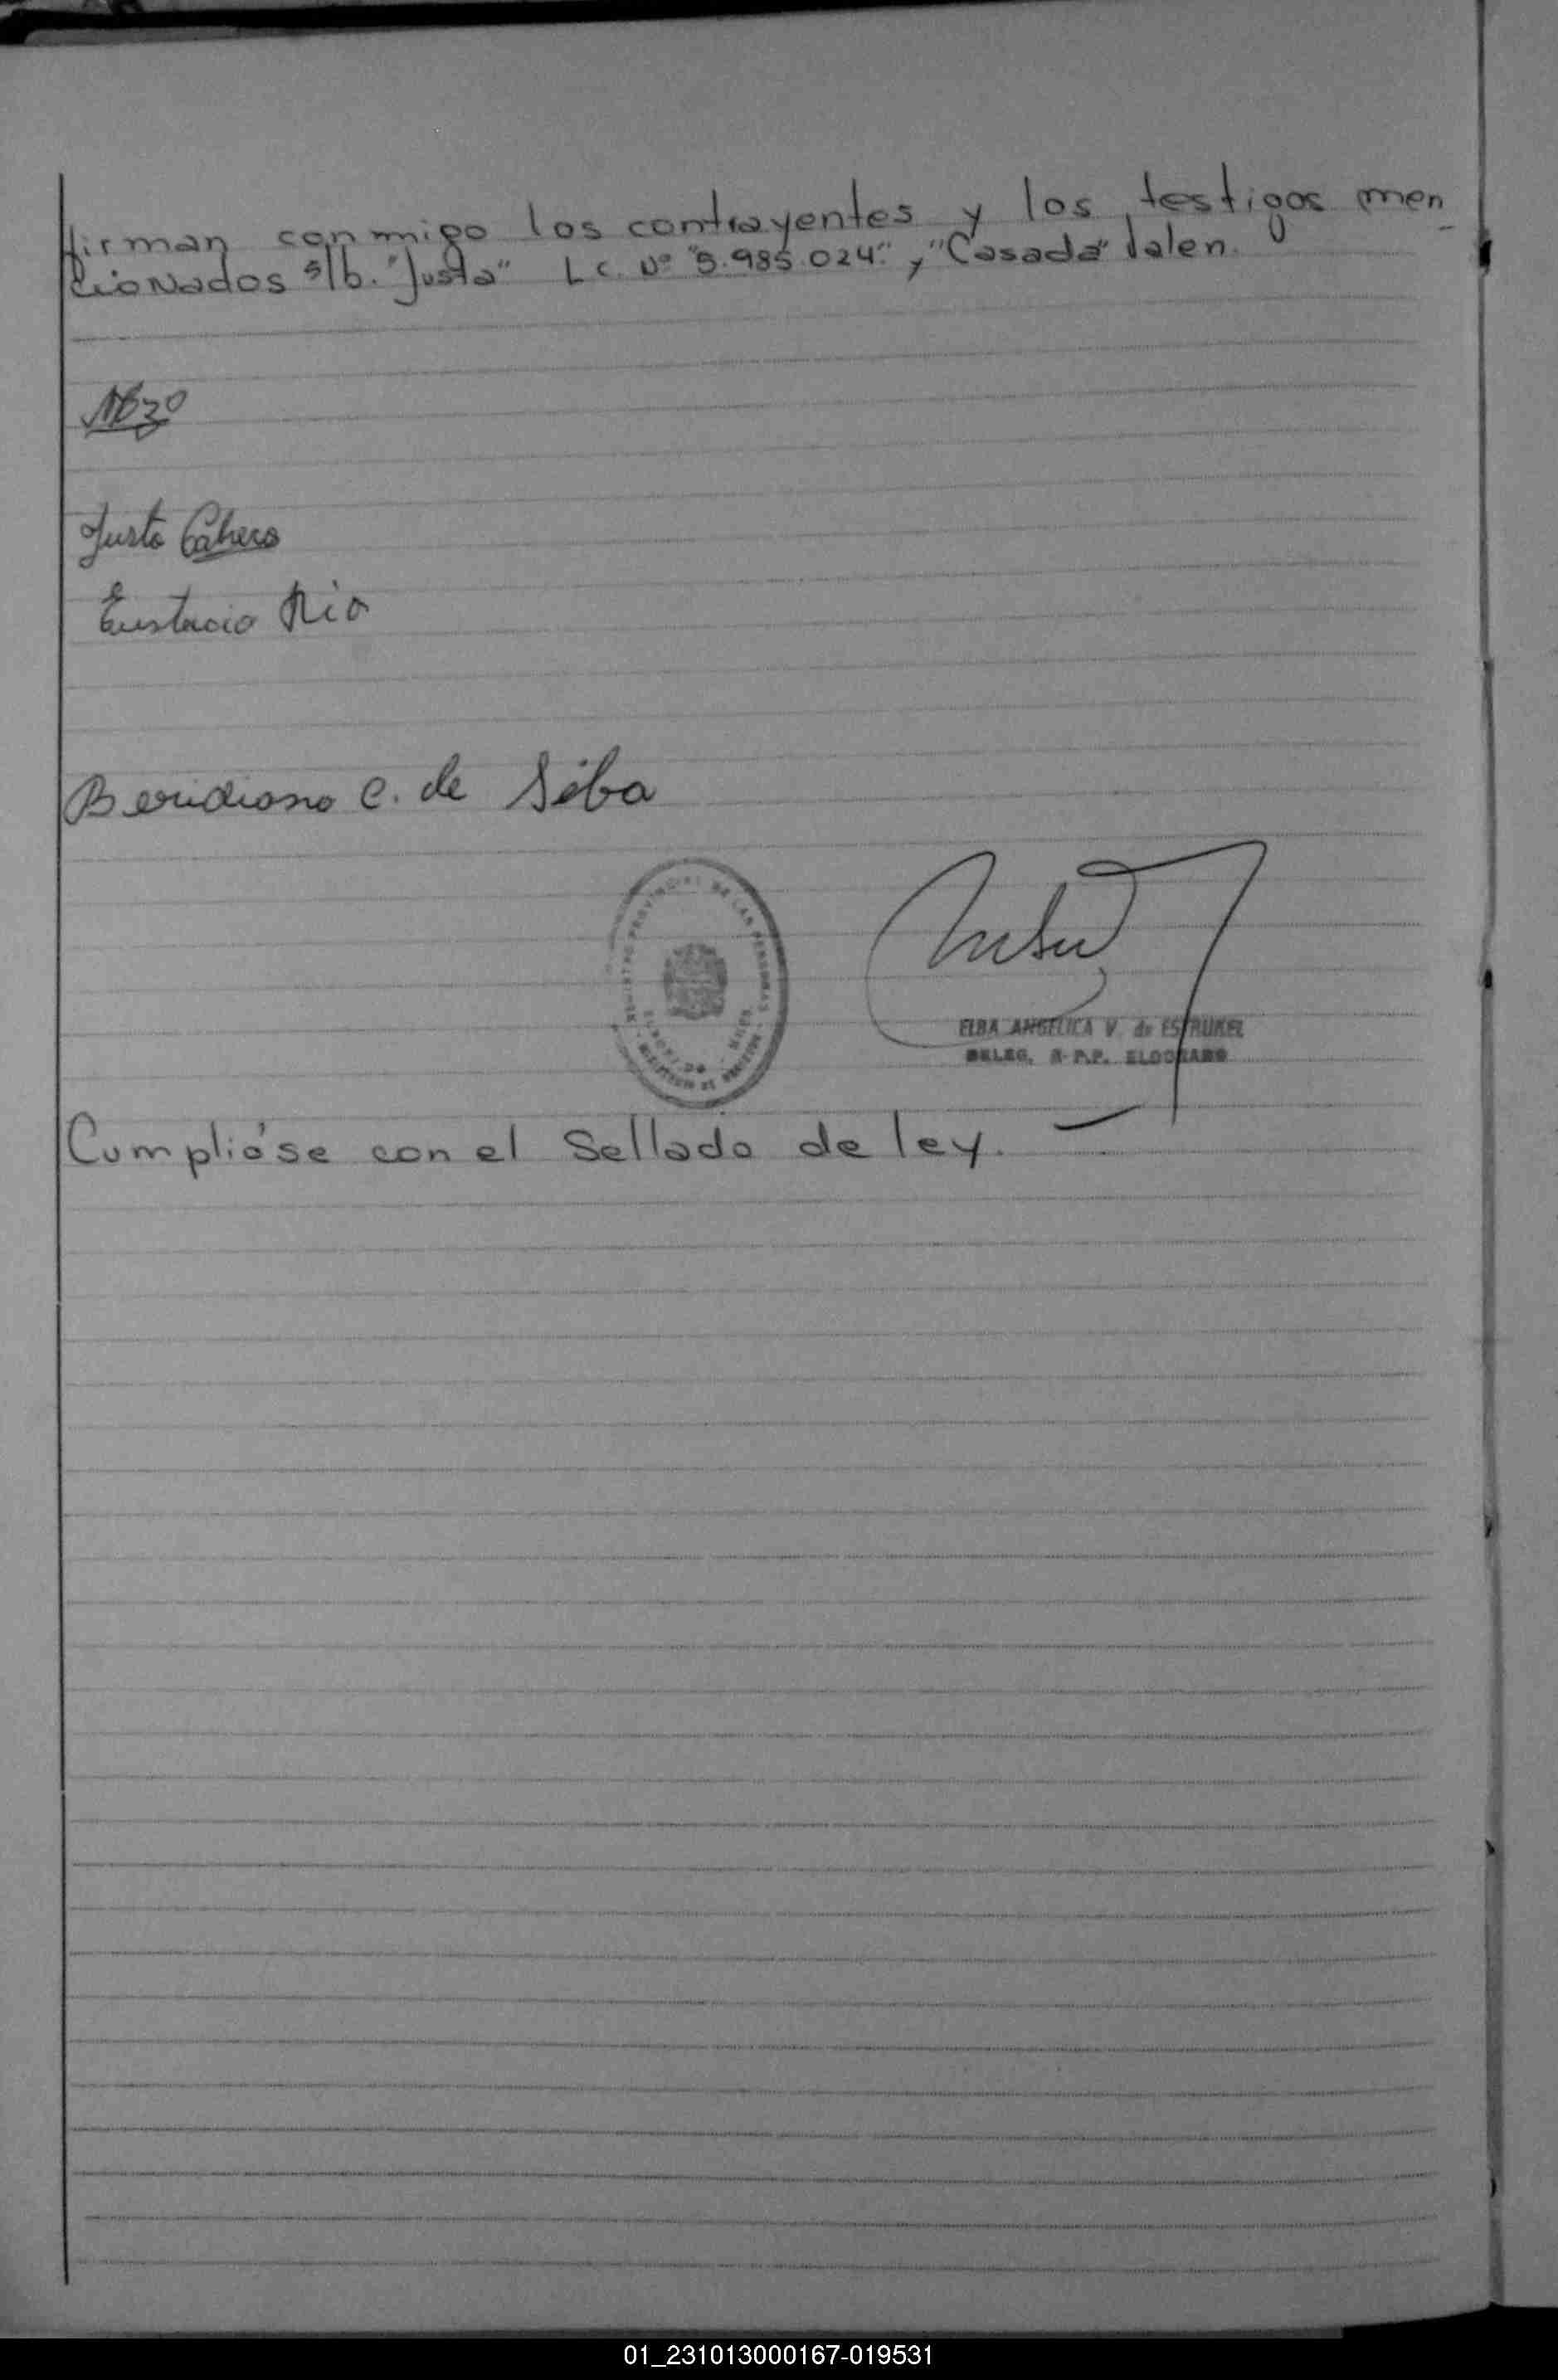 firman conmigo los contrayentes y los testigos men_
cionados s/b. "Justa" L c. Nº "5.985.024". y "Casada" Valen.
Justa Cabera
Eustacio Rio
Beridiana C. de Siba
REGISTRO PROVINCIAL DE LAS PERSONAS
ELDORADO - MNES.
ELBA ANGELICA V. de ESTRUKEL
DELEG. R.P.P. ELDORADO
Cumplióse con el Sellado de ley. —
01_231013000167-019531